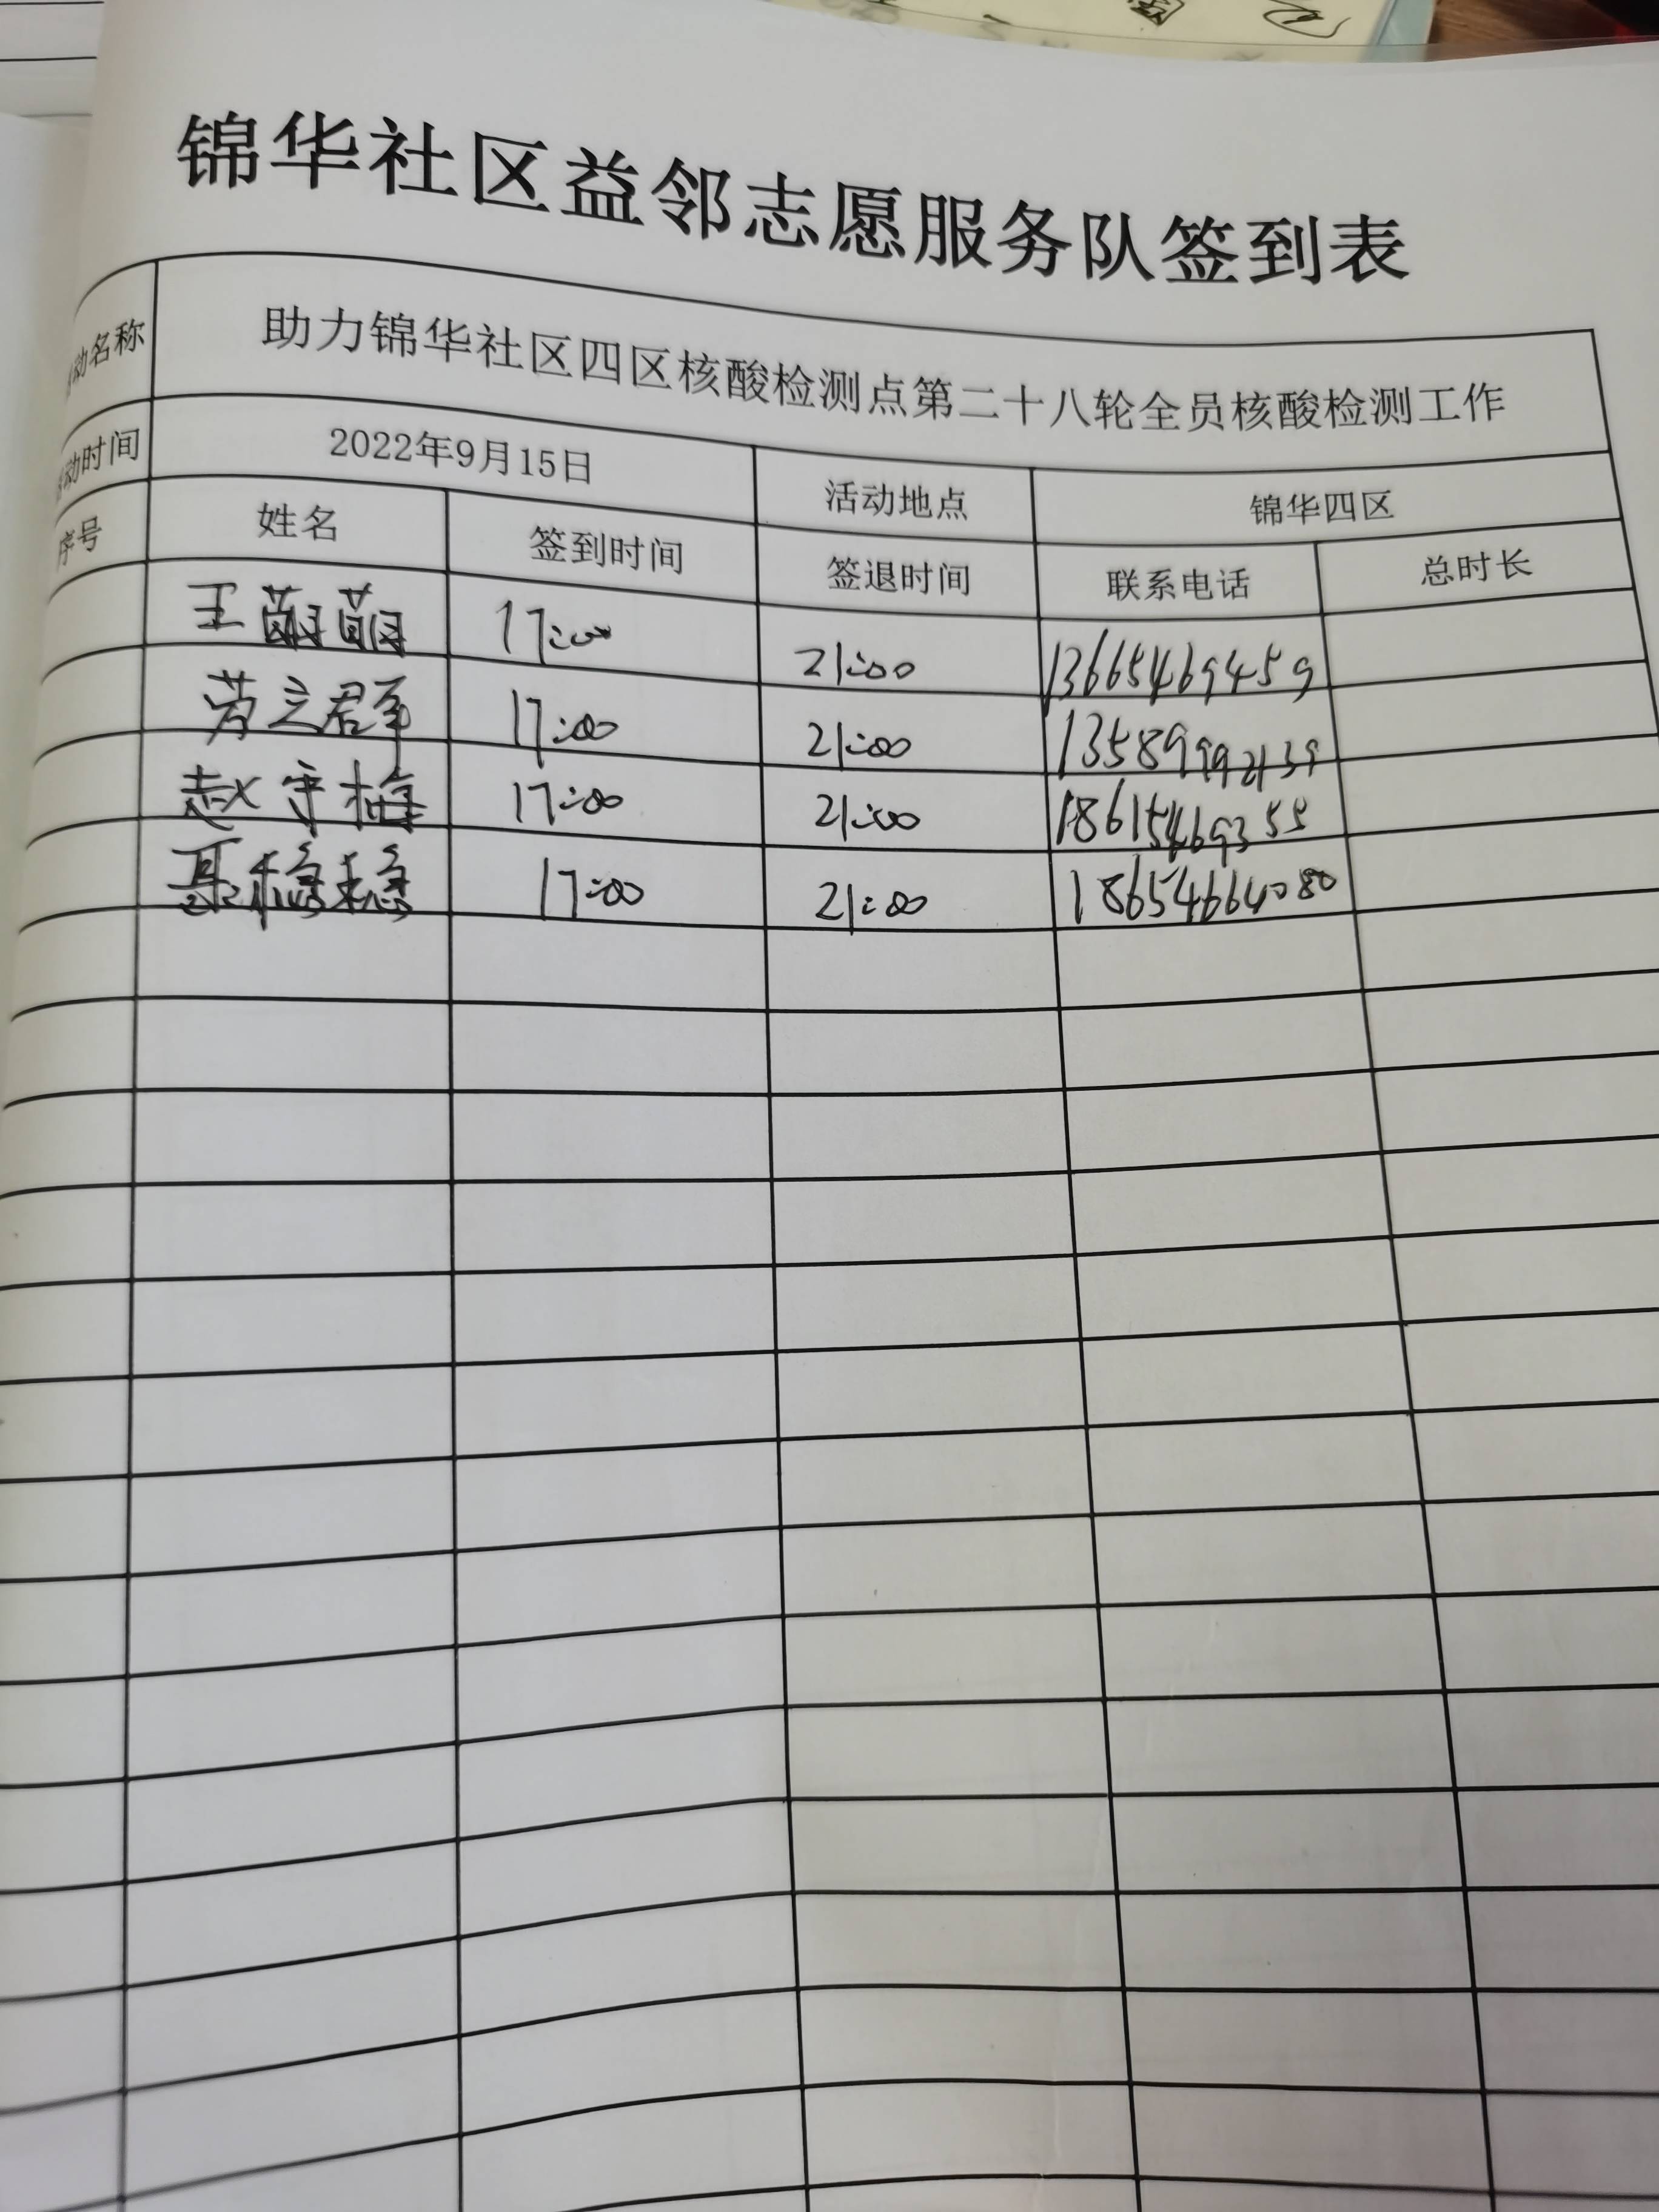 锦华社区益邻志愿服务队签到表
动名称 助力锦华社区四区核酸检测点第二十八轮全员核酸检测工作
动时间 2022年9月15日 活动地点 锦华四区
序号 姓名 签到时间 签退时间 联系电话 总时长
王萌萌 17:00 21:00 13665469459
劳立群 17:00 21:00 13589992139
赵守梅 17:00 21:00 18615469355
聂稳稳 17:00 21:00 18654664080